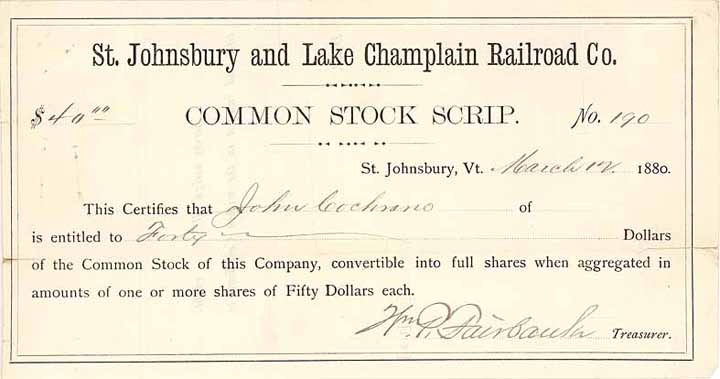 St. Johnsbury and Lake Champlain Railroad Co.
$40.00 COMMON STOCK SCRIP. No. 190
St. Johnsbury, Vt. March 12. 1880.
This Certifies that John Cochrane of
is entitled to Forty Dollars
of the Common Stock of this Company, convertible into full shares when aggregated in
amounts of one or more shares of Fifty Dollars each.
Wm. P. Fairbanks Treasurer.